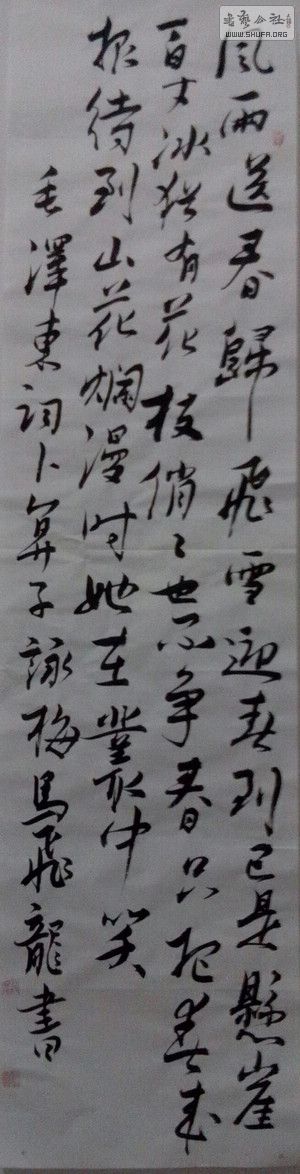 風雨送春歸飛雪迎春到已是懸崖
百丈冰猶有花枝俏俏也不爭春只把春來
報待到山花爛漫時她在叢中笑
毛澤東詞卜算子詠梅馬飛龍書
书艺公社
WWW.SHUFA.ORG